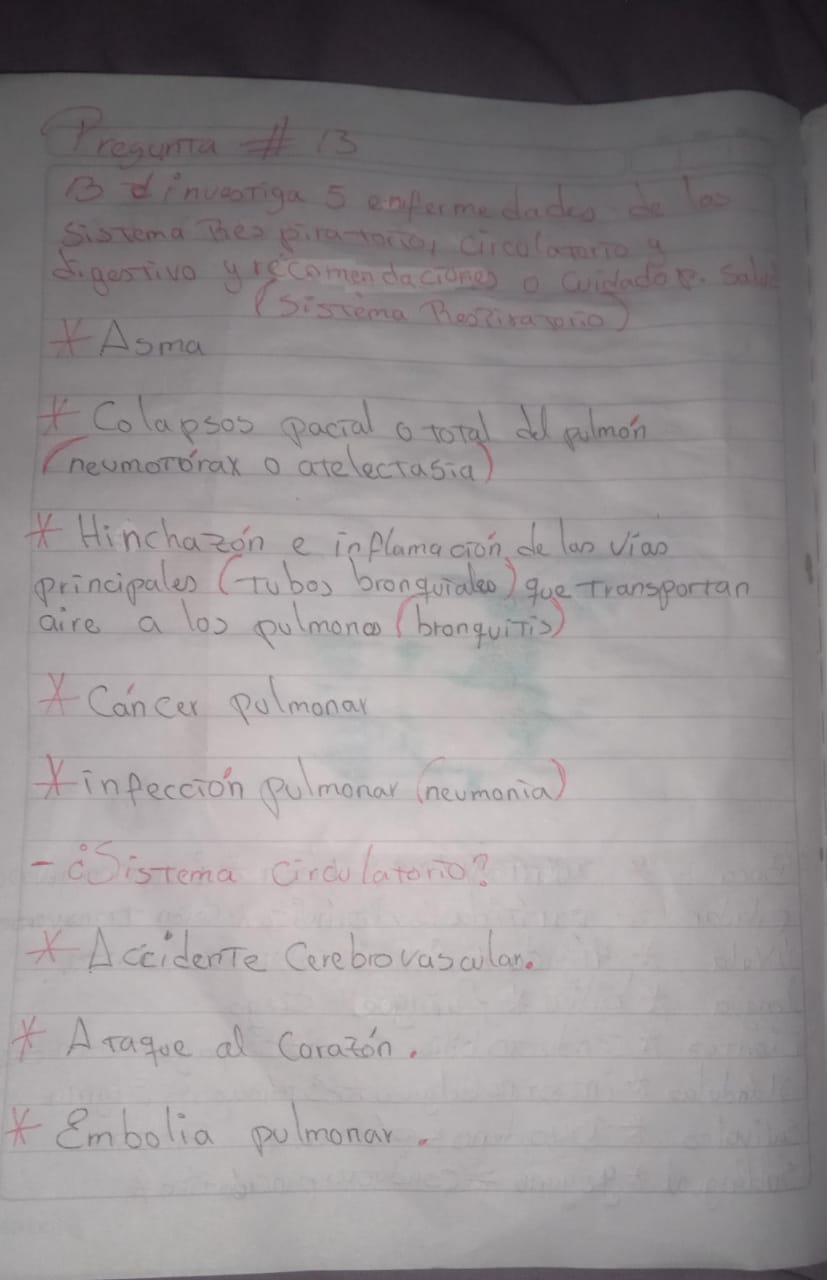 Pregunta # 13
13 d investiga 5 enfermedades de las
sistema Respiratorio, circulatorio y
digestivo y recomendaciones o cuidado p. salud
(Sistema Respiratorio)
* Asma
* Colapsos pacial o total del pulmón
(neumotórax o atelectasia)
* Hinchazón e inflamación de las vías
principales (tubos bronquiales) que transportan
aire a los pulmones (bronquitis)
* Cáncer pulmonar
* infección pulmonar (neumonia)
- ¿Sistema circulatorio?
* Accidente Cerebrovascular.
* Ataque al Corazón.
* Embolia pulmonar.